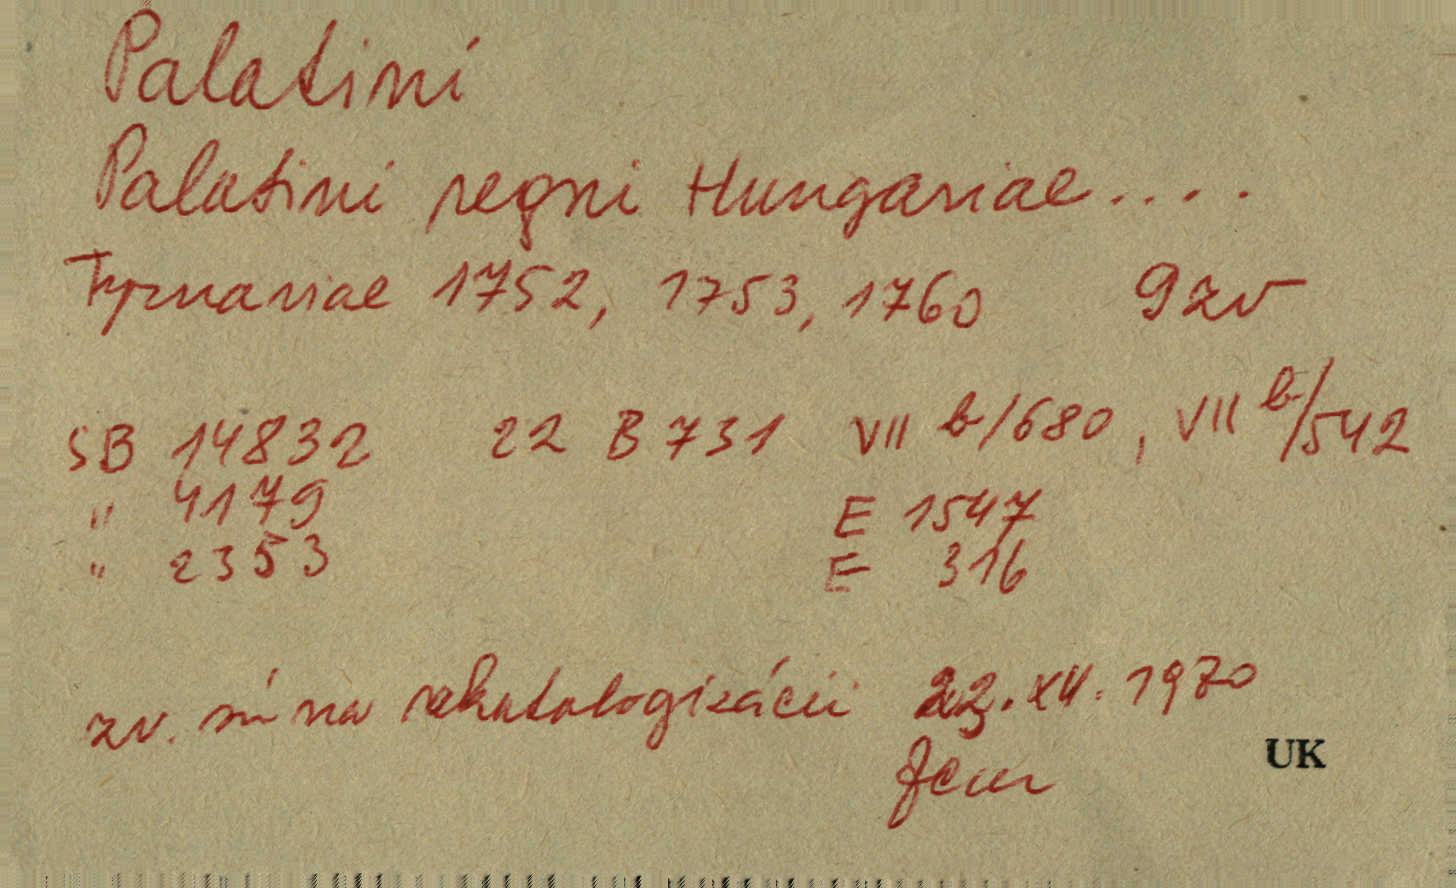 Palatini
Palatini regni Hungariae....
Tyrnaviae 1752, 1753, 1760 9 zv
SB 14832 22 B 731 VII b/680, VII b/542
" 4179 E 1547
" 2353 E 316
zv. sú na rekatalogizácii .XII.1970
UK